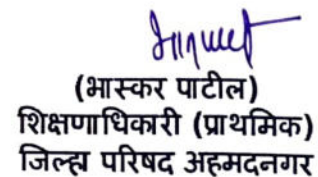 (भास्कर पाटील)
शिक्षणाधिकारी (प्राथमिक)
जिल्हा परिषद अहमदनगर